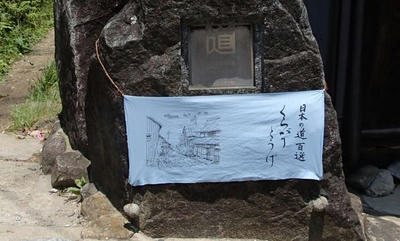 道
日本の道百選
くらがり
とうげ